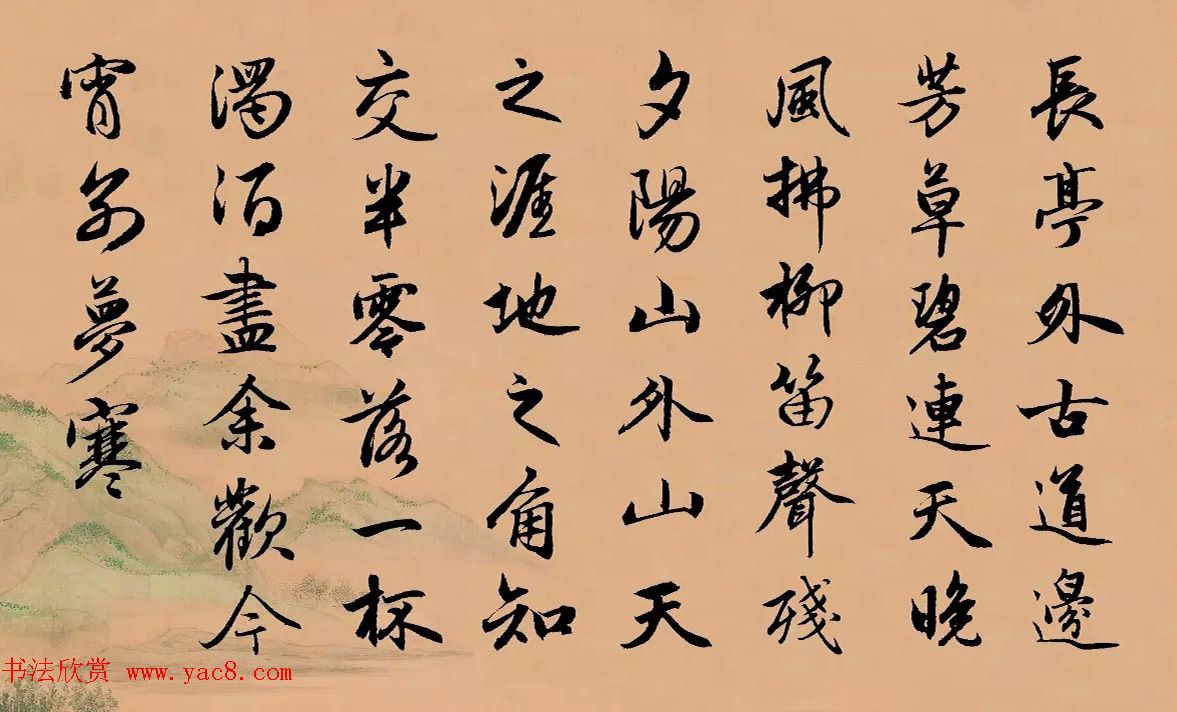 長亭外古道邊
芳草碧連天晚
風拂柳笛聲殘
夕陽山外山天
之涯地之角知
交半零落一杯
濁酒盡余歡今
宵別夢寒
书法欣赏 www.yac8.com